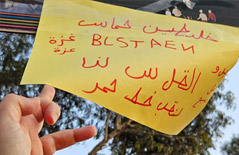 فلسطين حماس
غزة BLSTAEN
عزة
القدس لنا
خط حمر